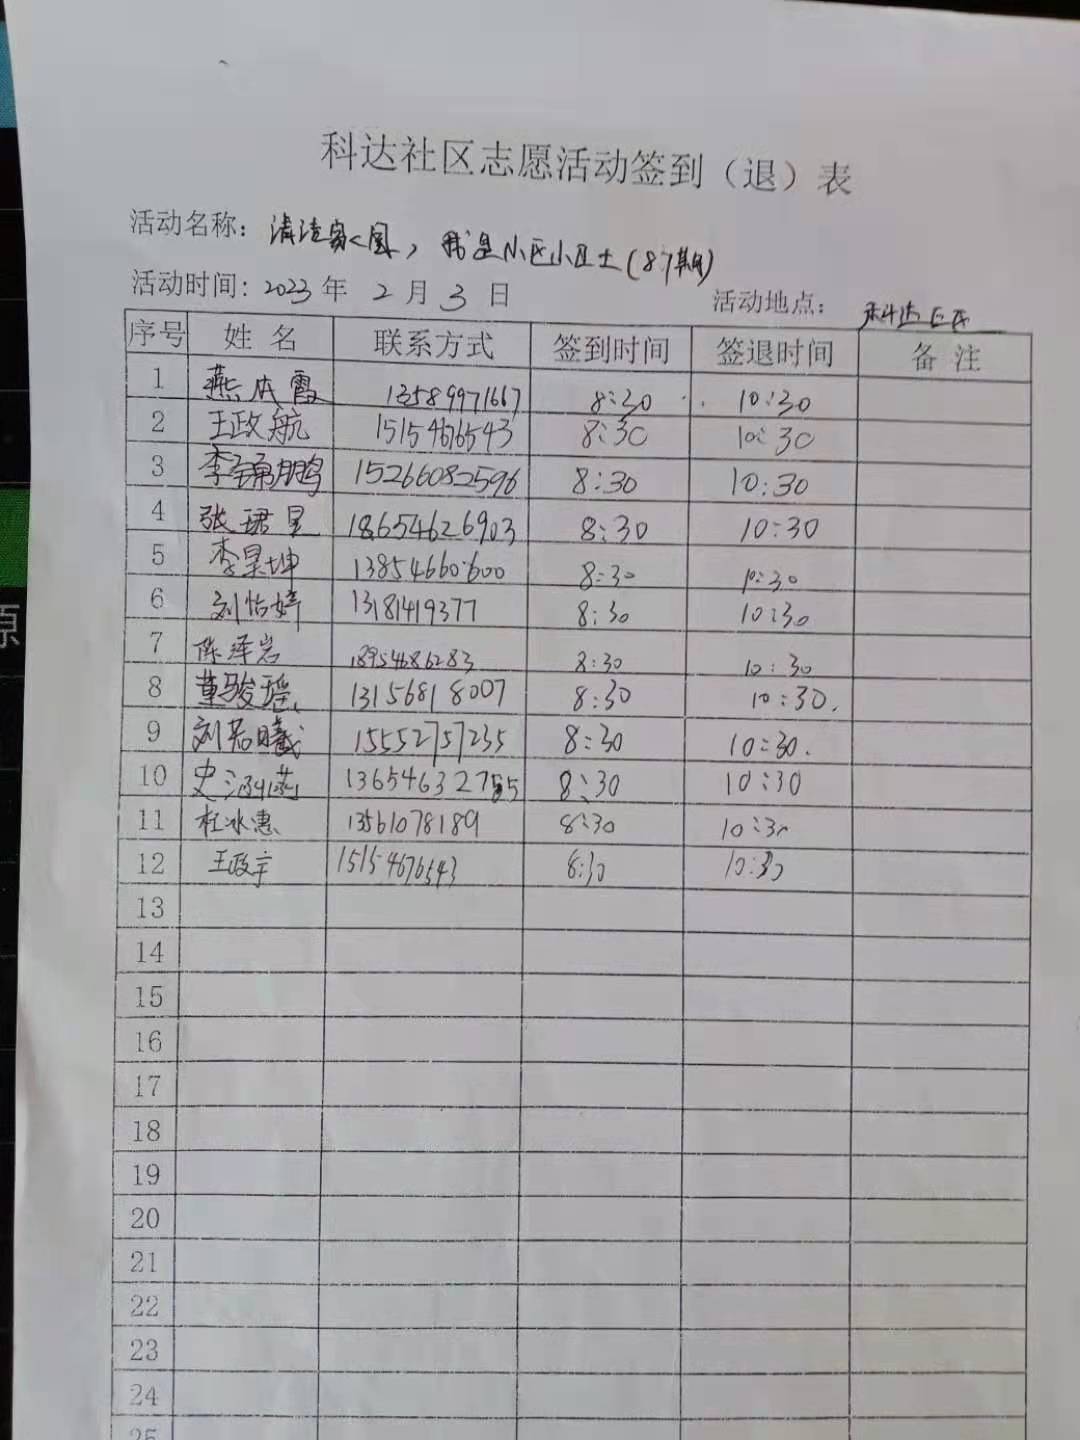 科达社区志愿活动签到（退）表
活动名称：清洁家园，我是小区小卫士（87期）
活动时间：2023年2月3日 活动地点：科达社区
序号 姓名 联系方式 签到时间 签退时间 备注
1 燕成霞 13589971667 8:30 10:30
2 王政航 15154676543 8:30 10:30
3 李鹏 15266082596 8:30 10:30
4 张珺星 18654626903 8:30 10:30
5 李昊坤 13854660600 8:30 10:30
6 刘怡婷 13181419377 8:30 10:30
7 陈泽岩 18954686283 8:30 10:30
8 董骏瑶 13156818007 8:30 10:30.
9 刘若曦 15552757235 8:30 10:30.
10 史涵菡 8:30 10:30
11 杜冰惠 13561078189 8:30 10:30
12 王政宇 15154676543 8:30 10:30
13
14
15
16
17
18
19
20
21
22
23
24
25
原